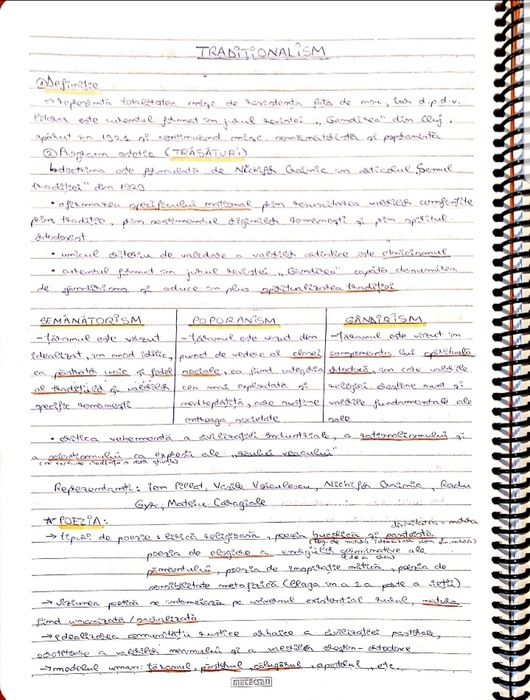 TRADIȚIONALISM
① Definiție
→ reprezintă totalitatea mișc. de rezistență față de nou, iar d.p.d.v.
literar este curentul format în jurul revistei „Gândirea" din Cluj,
apărut în 1921 și continuând mișc. semănătoristă și poporanistă
② Program estetic (TRĂSĂTURI)
↳ doctrina este formulată de Nichifor Crainic în articolul „Sensul
tradiției" din 1929
• afirmarea specificului național prin resuscitarea valorilor
prin tradiție, prin sentimentul originilor românești și prin spiritul
ortodoxist
• unicul criteriu de validare a valorilor artistice este etnicismul
• curentul format în jurul revistei „Gândirea" capătă denumirea
de gândirism și aduce în plus spiritualizarea tradiției
SEMĂNĂTORISM POPORANISM GÂNDIRISM
- țăranul este văzut - țăranul este văzut din - țăranul este văzut în
idealizat, în mod idilic, punct de vedere al clasei componenta lui spirituală
ca păstrător unic și fidel sociale, ca fiind categoria ortodoxă, în care valorile
al tradițiilor și valorilor cea mai exploatată și religiei creștine sunt și
specific românești nedreptățită, care susține valorile fundamentale ale
întreaga societate sale
• critica vehementă a civilizației industriale, a raționalismului și
a ca expresii ale „răului veacului"
Reprezentanți: Ion Pillat, Vasile Voiculescu, Nichifor Crainic, Radu
Gyr, Mateiu Caragiale
* POEZIA:
→ tipuri de poezie: lirică religioasă, poezia bucolică și panteistă
poezia de elogiere a energiilor germinative ale
pământului, poezia de inspirație mitică, poezia de
sensibilitate metafizică (Blaga în a 2a parte a vieții)
→ viziunea poetică se întemeiază pe universul existențial rural, natura
fiind umanizată / sacralizată
→ idealizarea comunității rustice arhaice a civilizației pastorale,
a valorilor neamului și a valorilor creștin-ortodoxe
→ modelul uman: țăranul, păstorul, călugărul, apostolul, etc.